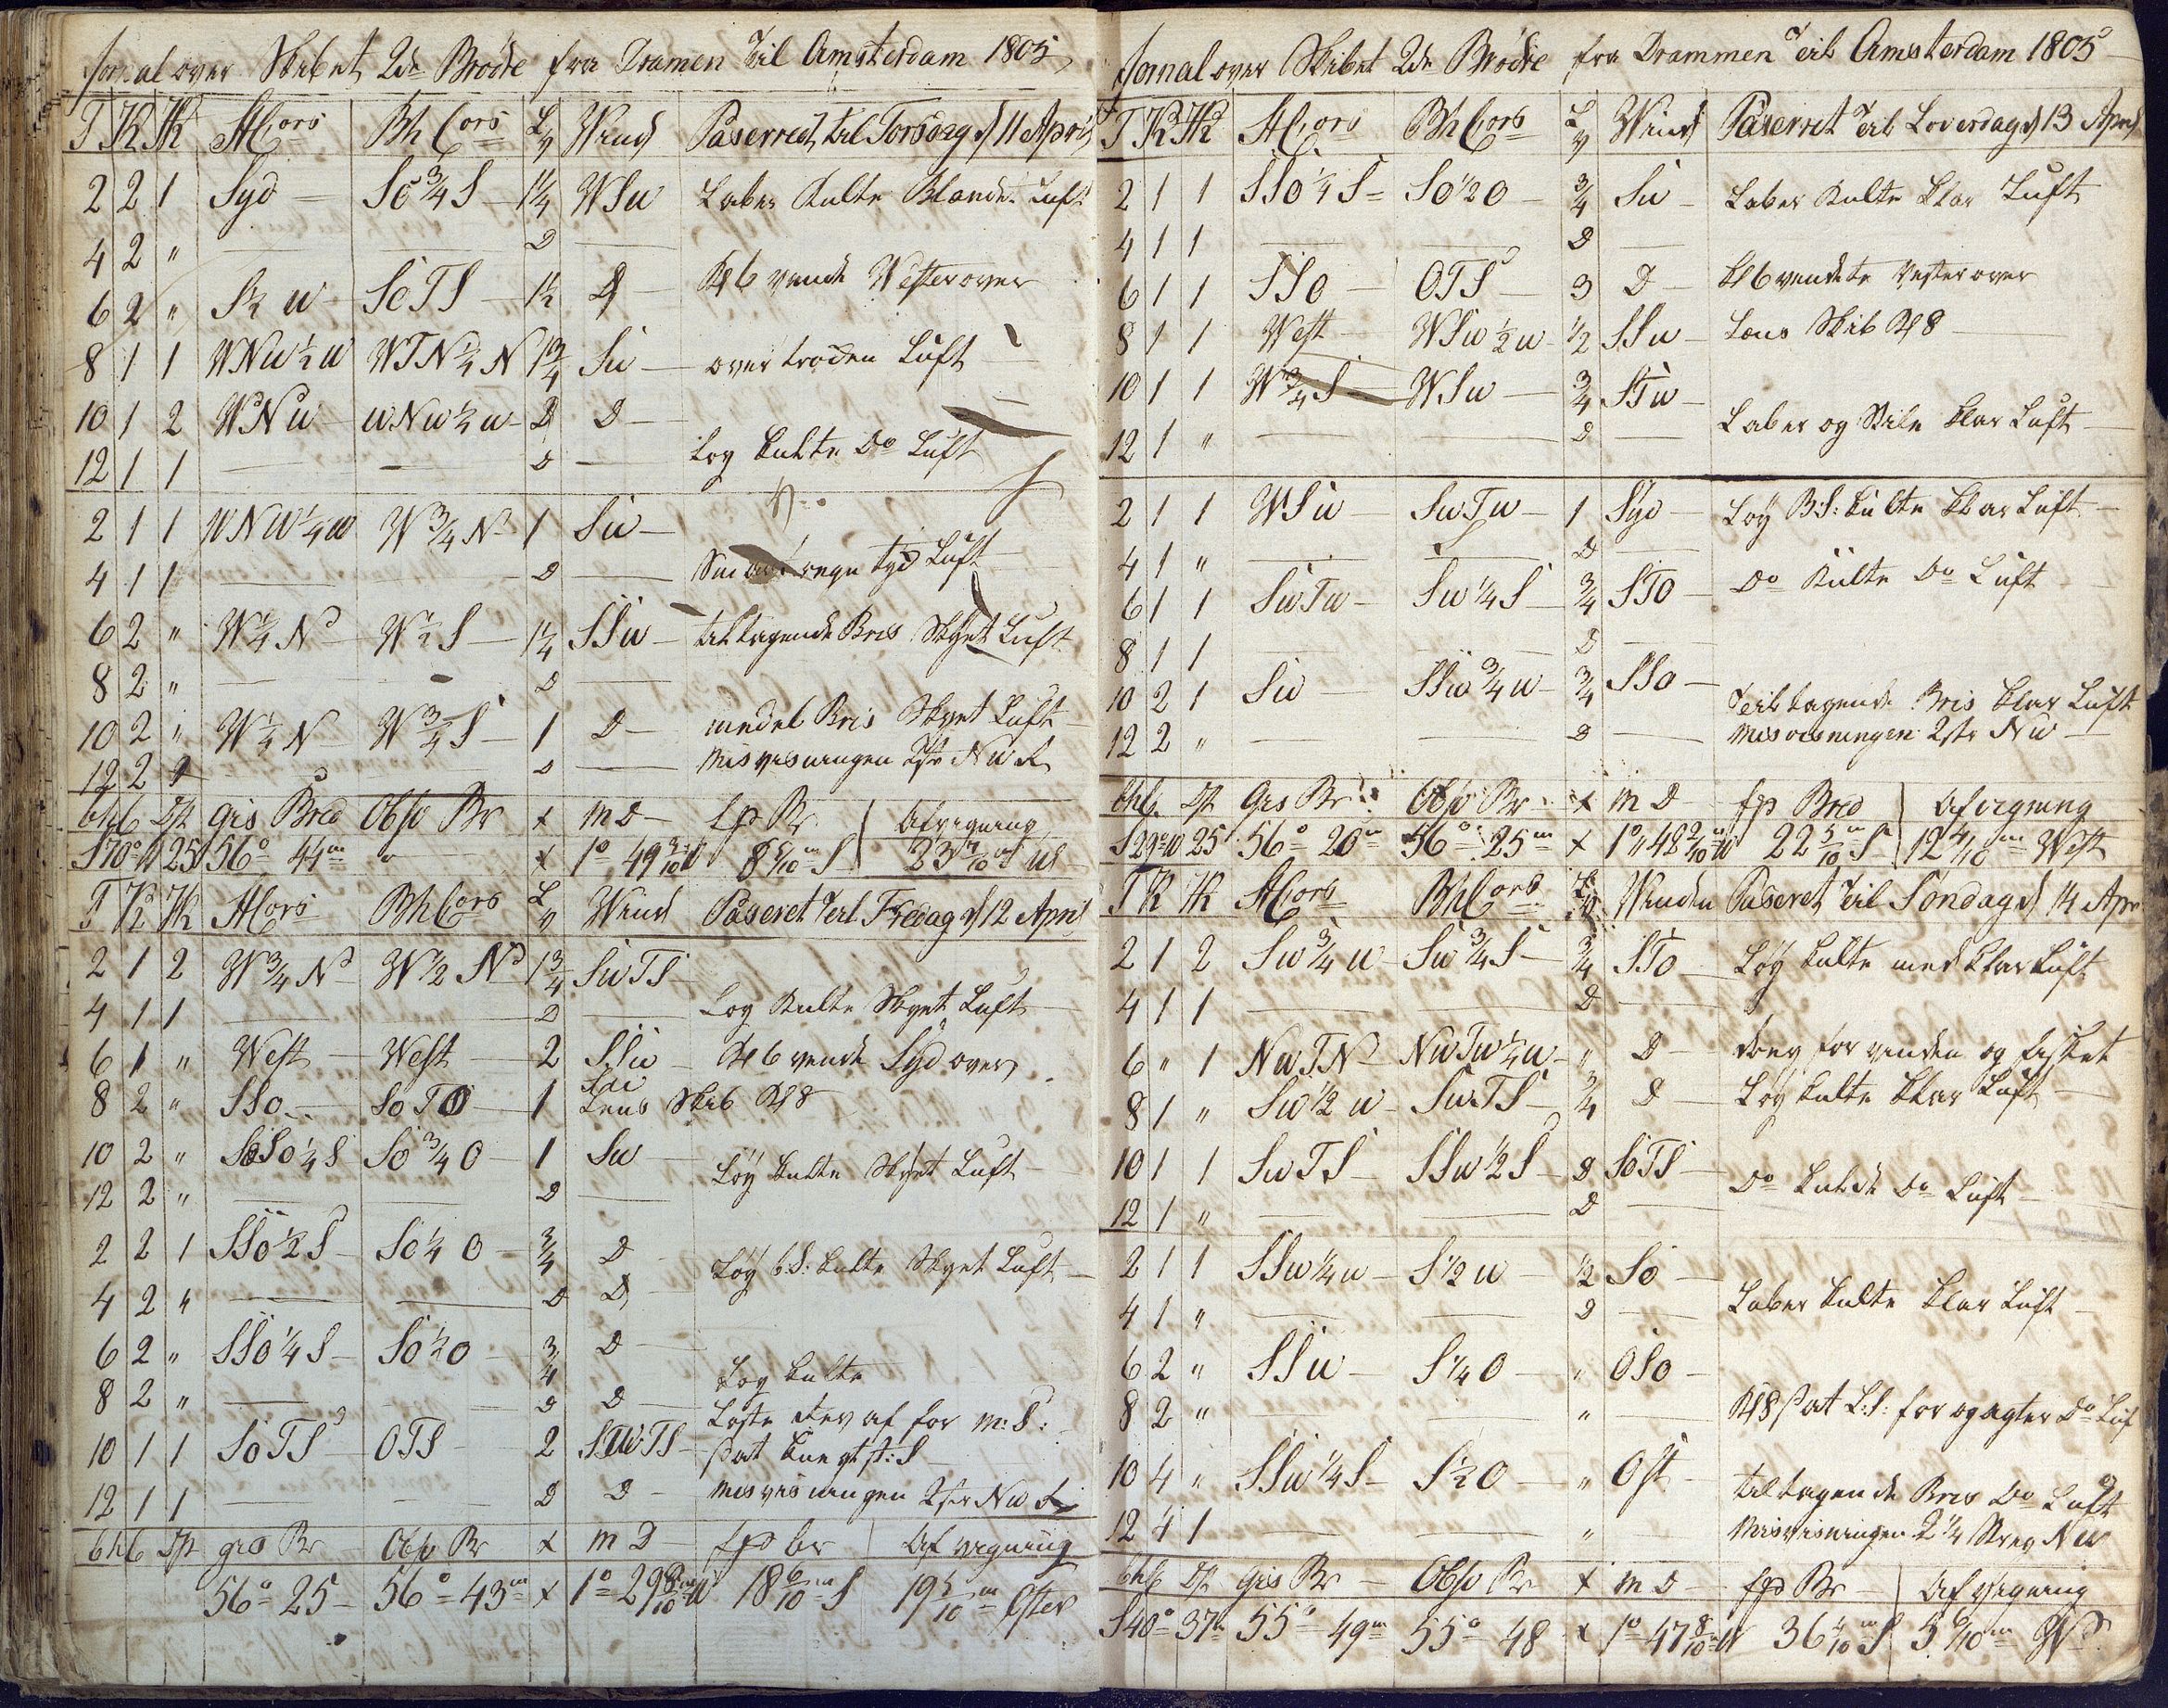 Jornal over Skibet 2de Brødre fra Dramen Til Amsterdam 1805
T K HK St Cors Bh Cors L v Wind Paserret til Torsdag d 11 April
2 2 1 Syd — So 3/4 S — 1 1/4 WSw Laber Kulte Blandet Luft
4 2 " — — D —
6 2 " S 1/2 w SoTS — 1 1/2 D — Kl 6 vende Westerover
8 1 1 WNw 1/2 w WTN 1/2 N 1 3/4 Sw — over troden Luft
10 1 2 WNw wNw 1/2 w D D —
12 1 1 — — D — Løy Kulte Do Luft
2 1 1 WNW 1/4 w W 3/4 N 1 Sw —
4 1 1 — — D — regn tyd Luft
6 2 " W 1/4 N W 1/2 S 1 1/4 SSw — tiltagende Bris Skyet Luft
8 2 " — — D —
10 2 " W 1/4 N W 3/4 S — 1 D — medel Bris Skyet Luft
12 2 — D — Misvisningen 2str Nw
beh C Dst gis Bred Obsv Br x m D — fps Br Afvigning
S 70° W 25 56° 44m " x 1° 49 W 8 /10 m S 23 /10 m W
T K HK St Cors Bh Cors L v Wind Paseret Teil Fredag d 12 April
2 1 2 W 3/4 N W 1/2 N 1 3/4 SwTS
4 1 1 — — D — Løy Kulte Skyet Luft
6 1 " West — West — 2 SSw — Kl 6 vende Syd over
8 2 " SSo SoTO — 1 Lens Skib Kl 8
10 2 " SSo 1/4 S So 3/4 O — 1 Sw — Løy Kulte Skyet Luft
12 2 " — — D —
2 2 1 SSo 1/2 S So 1/4 O 3/4 D — Løy b:S: Kulte Skyet Luft
4 2 " — — D D
6 2 " SSo 1/4 S So 1/2 O 3/4 D — Løy Kulte
8 2 " — — D D — Løste Rev af for M: S:
10 1 1 SoTS OTS 2 SwTS — sat
12 1 1 — — D D — Misvisningen 2str Nw
beh C Dst gis Br Obsv Br x m D fps br Afvigning
56° 25 56° 43m x 1° 29 /10 W 18 6/10 m S 19 /10 m Øster
Jornal over Skibet 2de Brødre fra Drammen Teil Amsterdam 1805
T K HK St Cors Bh Cors L v Wind Paserret Teil Loverdag d 13 April
2 1 1 SSo 1/4 S So 1/2 O — 3/4 Sw — Laber Kulte Klar Luft
4 1 1 — — D —
6 1 1 SSO — OTS — 3 D — Kl 6 vendete Vesterover
8 1 1 West — WSw 1/2 w 1/2 SSw — Lens Skib Kl 8
10 1 1 W 3/4 S — WSw — 3/4 STw —
12 1 " — — D — Laber og Stile Klar Luft
2 1 1 WSw — SwTw — 1 Syd — Løy B:S: Kulte Klar Luft
4 1 " — — D —
6 1 1 SwTw — Sw 1/4 S — 3/4 STO — Do Kulte Do Luft
8 1 1 — — D —
10 2 1 Sw — SSw 3/4 w 3/4 SSo — Teiltagende Bris Klar Luft
12 2 " — — D — Misvisningen 2str Nw —
beh C Dst Gis Br Obsv Br x m D — fps Bred Afvigning
S 29° W 25 56° 20m 56° 25m x 1° 48 2/10 W 22 5/10 m S 12 4/10 m West
T K HK St Cors Bh Cors Winden Paseret Teil Søndag d 14 Apr
2 1 2 Sw 3/4 w Sw 3/4 S — 3/4 STo — Løy Kulte med Klar Luft
4 1 1 — — D —
6 " 1 NwTN NwTw 1/4 w " D — drev for vinden og fisket
8 1 " Sw 1/2 w SwTS — 3/4 D — Løy Kulte Klar Luft
10 1 1 SwTS — SSw 1/2 S — D SoTS — Do Kulde Do Luft
12 1 " — — D —
2 1 1 SSw 1/4 w — S 1/2 w — 1/2 So —
4 1 " — — D — Laber Kulte Klar Luft
6 2 " SSw — S 1/4 O — " OSo —
8 2 " — — " — Kl 8 sat L:S: for og agter Do Luf
10 4 " SSw 1/4 S S 1/2 O — " Ost — tiltagende Bris Do Luft
12 4 1 — — " — Misvisningen 2 1/4 Strey Nw
beh C Dst gis Br — Obsv Br x m D — fps Br — Afvigning
S 40° 37m 55° 49m 55° 48 x 1° 47 8/10 W 36 4/10 m S 5 6/10 m W